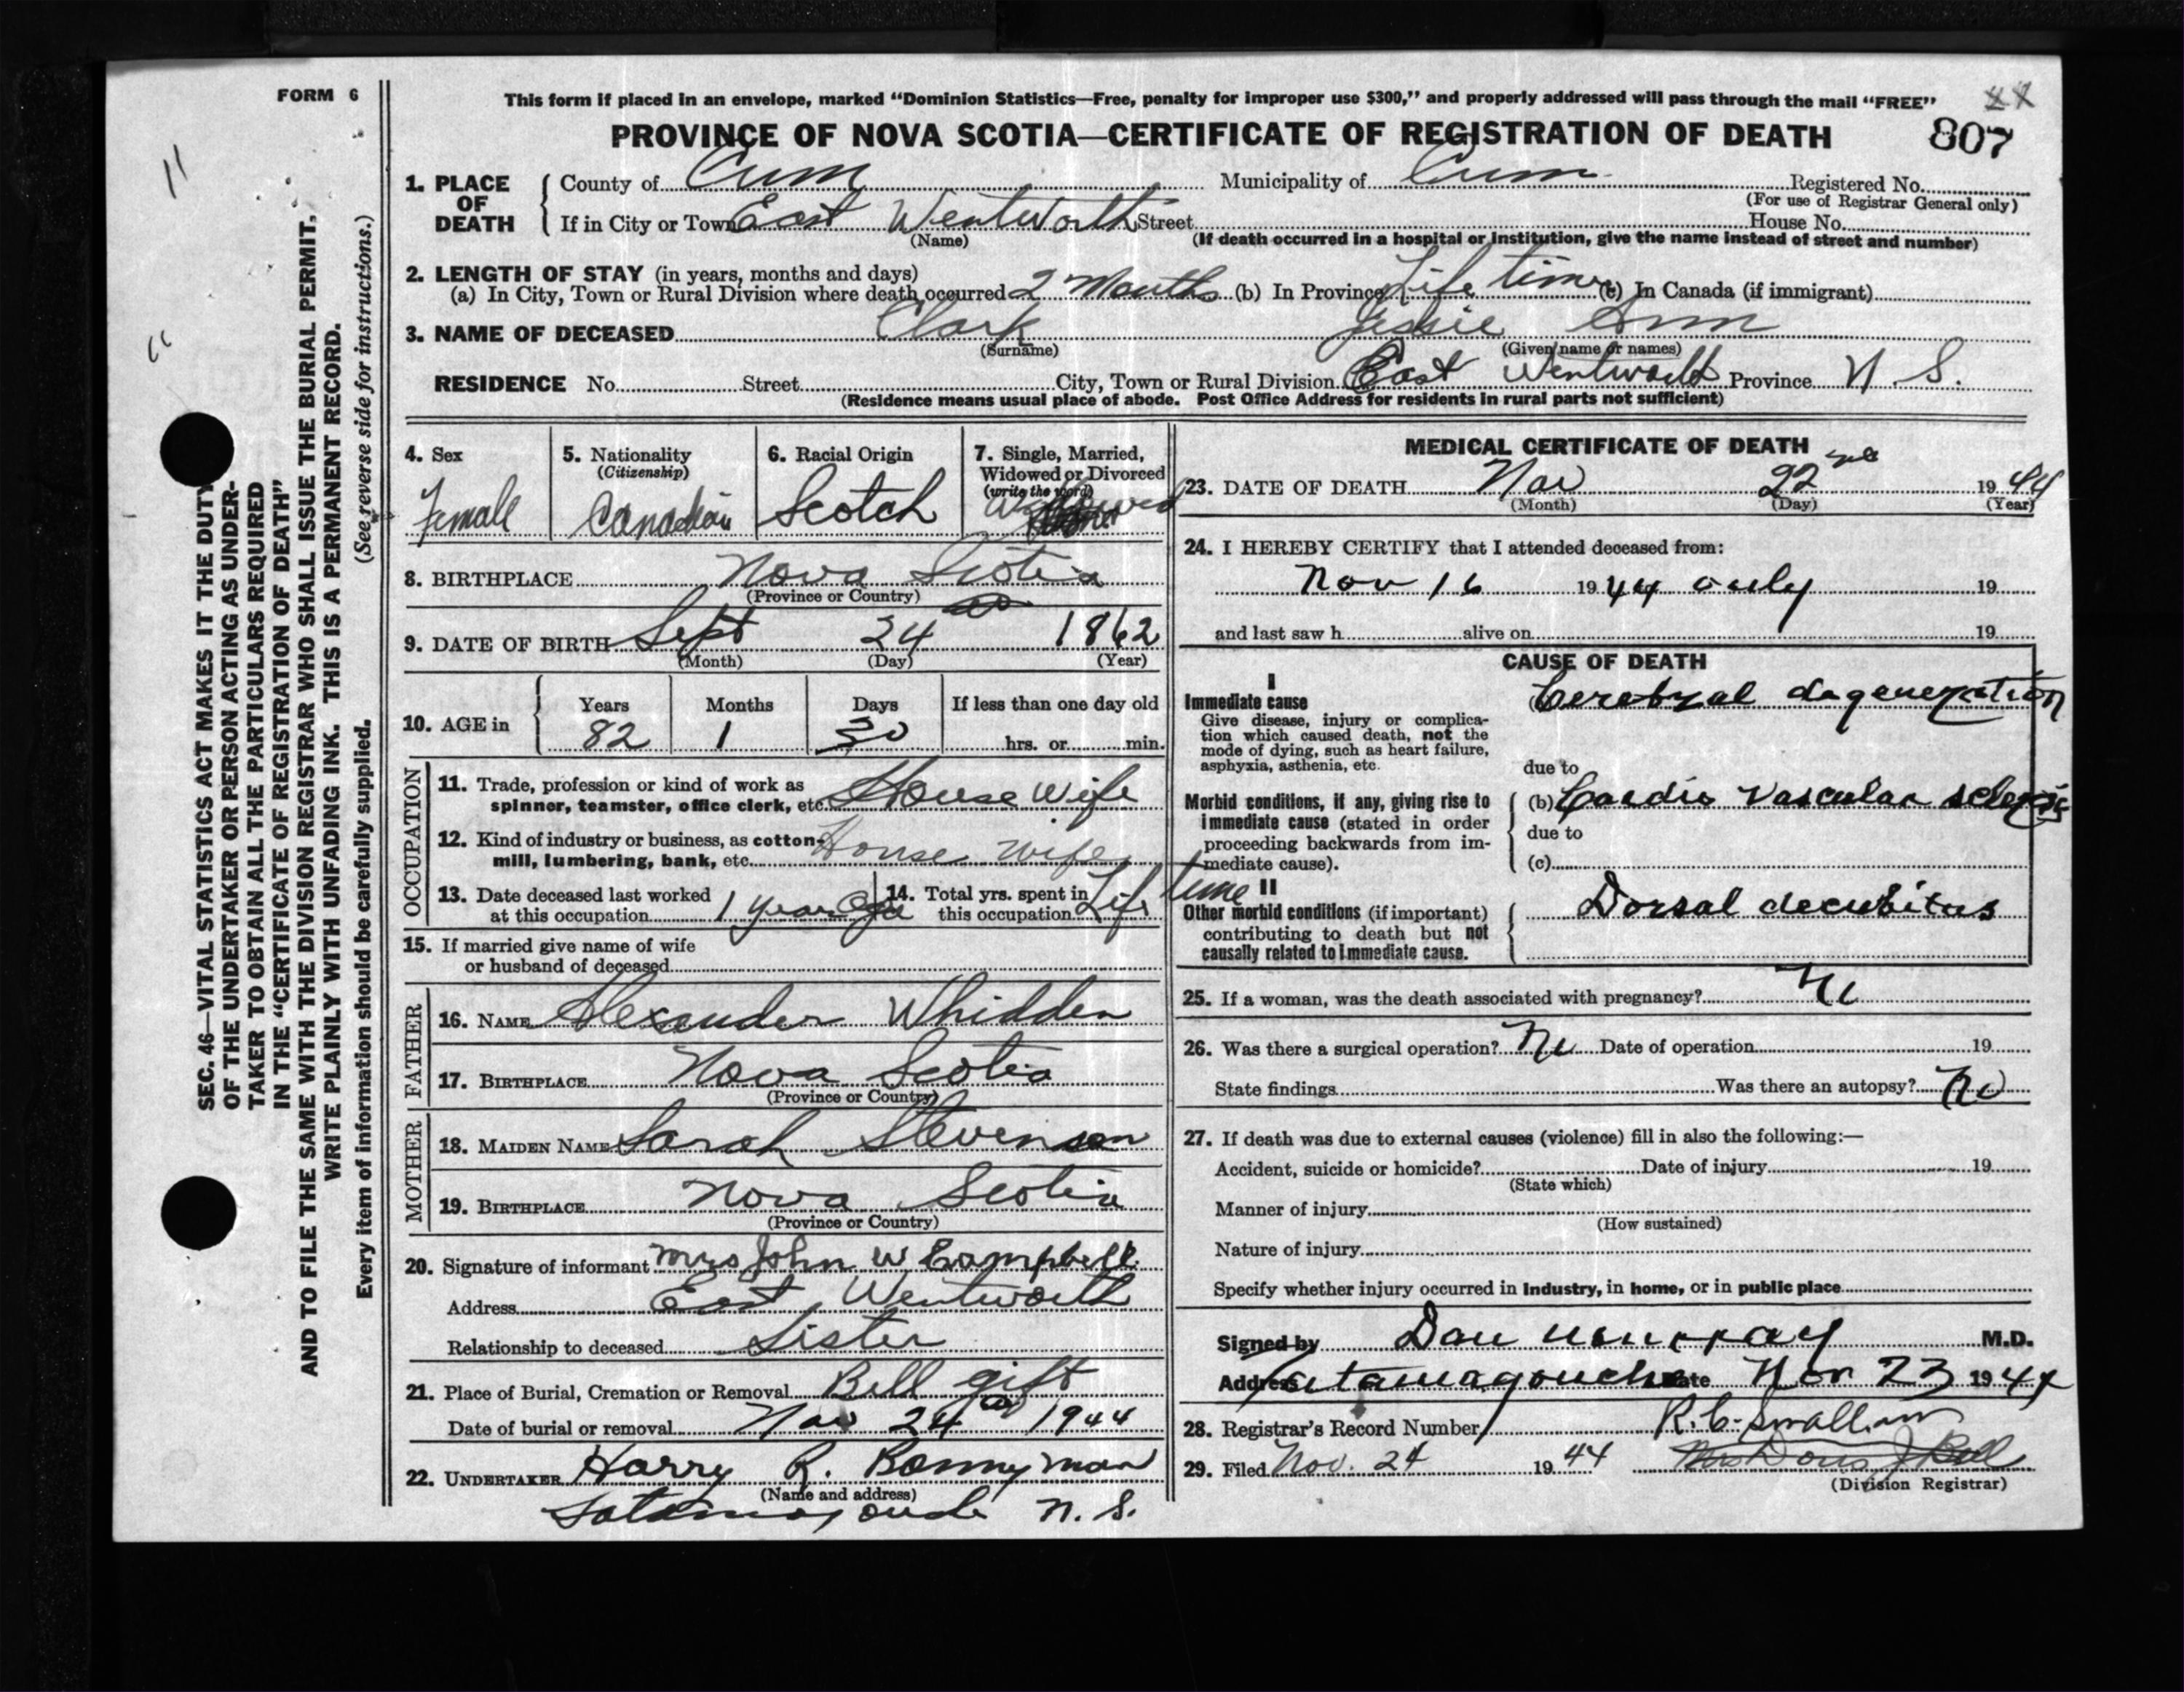 FORM 6
This form if placed in an envelope, marked "Dominion Statistics—Free, penalty for improper use $300," and properly addressed will pass through the mail "FREE"
PROVINCE OF NOVA SCOTIA—CERTIFICATE OF REGISTRATION OF DEATH 807
1. PLACE OF DEATH
County of Cum Municipality of Cum. Registered No.
(For use of Registrar General only)
If in City or Town East Wentworth Street House No.
(Name) (If death occurred in a hospital or institution, give the name instead of street and number)
2. LENGTH OF STAY (in years, months and days)
(a) In City, Town or Rural Division where death occurred 2 Months (b) In Province Life time (c) In Canada (if immigrant)
3. NAME OF DECEASED Clark Jessie Ann
(Surname) (Given name or names)
RESIDENCE No. Street City, Town or Rural Division East Wentworth Province N.S.
(Residence means usual place of abode. Post Office Address for residents in rural parts not sufficient)
SEC. 46—VITAL STATISTICS ACT MAKES IT THE DUTY
OF THE UNDERTAKER OR PERSON ACTING AS UNDER-
TAKER TO OBTAIN ALL THE PARTICULARS REQUIRED
IN THE "CERTIFICATE OF REGISTRATION OF DEATH"
AND TO FILE THE SAME WITH THE DIVISION REGISTRAR WHO SHALL ISSUE THE BURIAL PERMIT.
WRITE PLAINLY WITH UNFADING INK. THIS IS A PERMANENT RECORD.
Every item of information should be carefully supplied. (See reverse side for instructions.)
4. Sex
Female
5. Nationality
(Citizenship)
Canadian
6. Racial Origin
Scotch
7. Single, Married,
Widowed or Divorced
(write the word)
Widowed
8. BIRTHPLACE Nova Scotia
(Province or Country)
9. DATE OF BIRTH Sept 24 1862
(Month) (Day) (Year)
10. AGE in
Years Months Days If less than one day old
82 1 30 hrs. or min.
OCCUPATION
11. Trade, profession or kind of work as
spinner, teamster, office clerk, etc. House Wife
12. Kind of industry or business, as cotton-
mill, lumbering, bank, etc. House wife
13. Date deceased last worked
at this occupation 1 year ago
14. Total yrs. spent in
this occupation Life time
15. If married give name of wife
or husband of deceased
FATHER
16. NAME Alexander Whidden
17. BIRTHPLACE Nova Scotia
(Province or Country)
MOTHER
18. MAIDEN NAME Sarah Stevenson
19. BIRTHPLACE Nova Scotia
(Province or Country)
20. Signature of informant Mrs John W Campbell
Address East Wentworth
Relationship to deceased Sister
21. Place of Burial, Cremation or Removal Bell gift
Date of burial or removal Nov 24 1944
22. UNDERTAKER Harry R. Bonnyman
(Name and address)
Tatamagouche N.S.
MEDICAL CERTIFICATE OF DEATH
23. DATE OF DEATH Nov 22nd 1944
(Month) (Day) (Year)
24. I HEREBY CERTIFY that I attended deceased from:
Nov 16 1944 only 19
and last saw h alive on 19
CAUSE OF DEATH
I
Immediate cause
Give disease, injury or complica-
tion which caused death, not the
mode of dying, such as heart failure,
asphyxia, asthenia, etc.
Cerebral degeneration
due to
Morbid conditions, if any, giving rise to
immediate cause (stated in order
proceeding backwards from im-
mediate cause).
(b) Cardio Vascular sclerosis
due to
(c)
II
Other morbid conditions (if important)
contributing to death but not
causally related to immediate cause.
Dorsal decubitus
25. If a woman, was the death associated with pregnancy? No
26. Was there a surgical operation? No Date of operation 19
State findings Was there an autopsy? No
27. If death was due to external causes (violence) fill in also the following:—
Accident, suicide or homicide? Date of injury 19
(State which)
Manner of injury
(How sustained)
Nature of injury
Specify whether injury occurred in Industry, in home, or in public place
Signed by Dan Murray M.D.
Address Tatamagouche Date Nov 23 1944
28. Registrar's Record Number R. C. Smallman
29. Filed Nov. 24 1944 Mrs Doris J Bell
(Division Registrar)